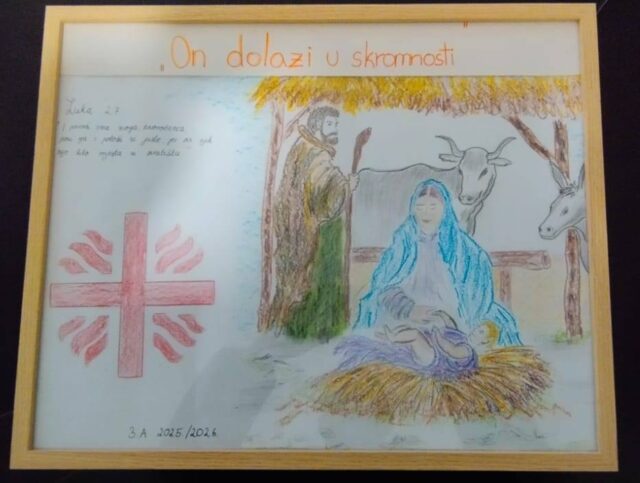 „On dolazi u skromnosti"
Luka 2.7
I porodi sina svoga, prvorođenca,
povi ga i položi u jasle jer za njih
nije bilo mjesta u svratištu"
3.A 2025./2026.